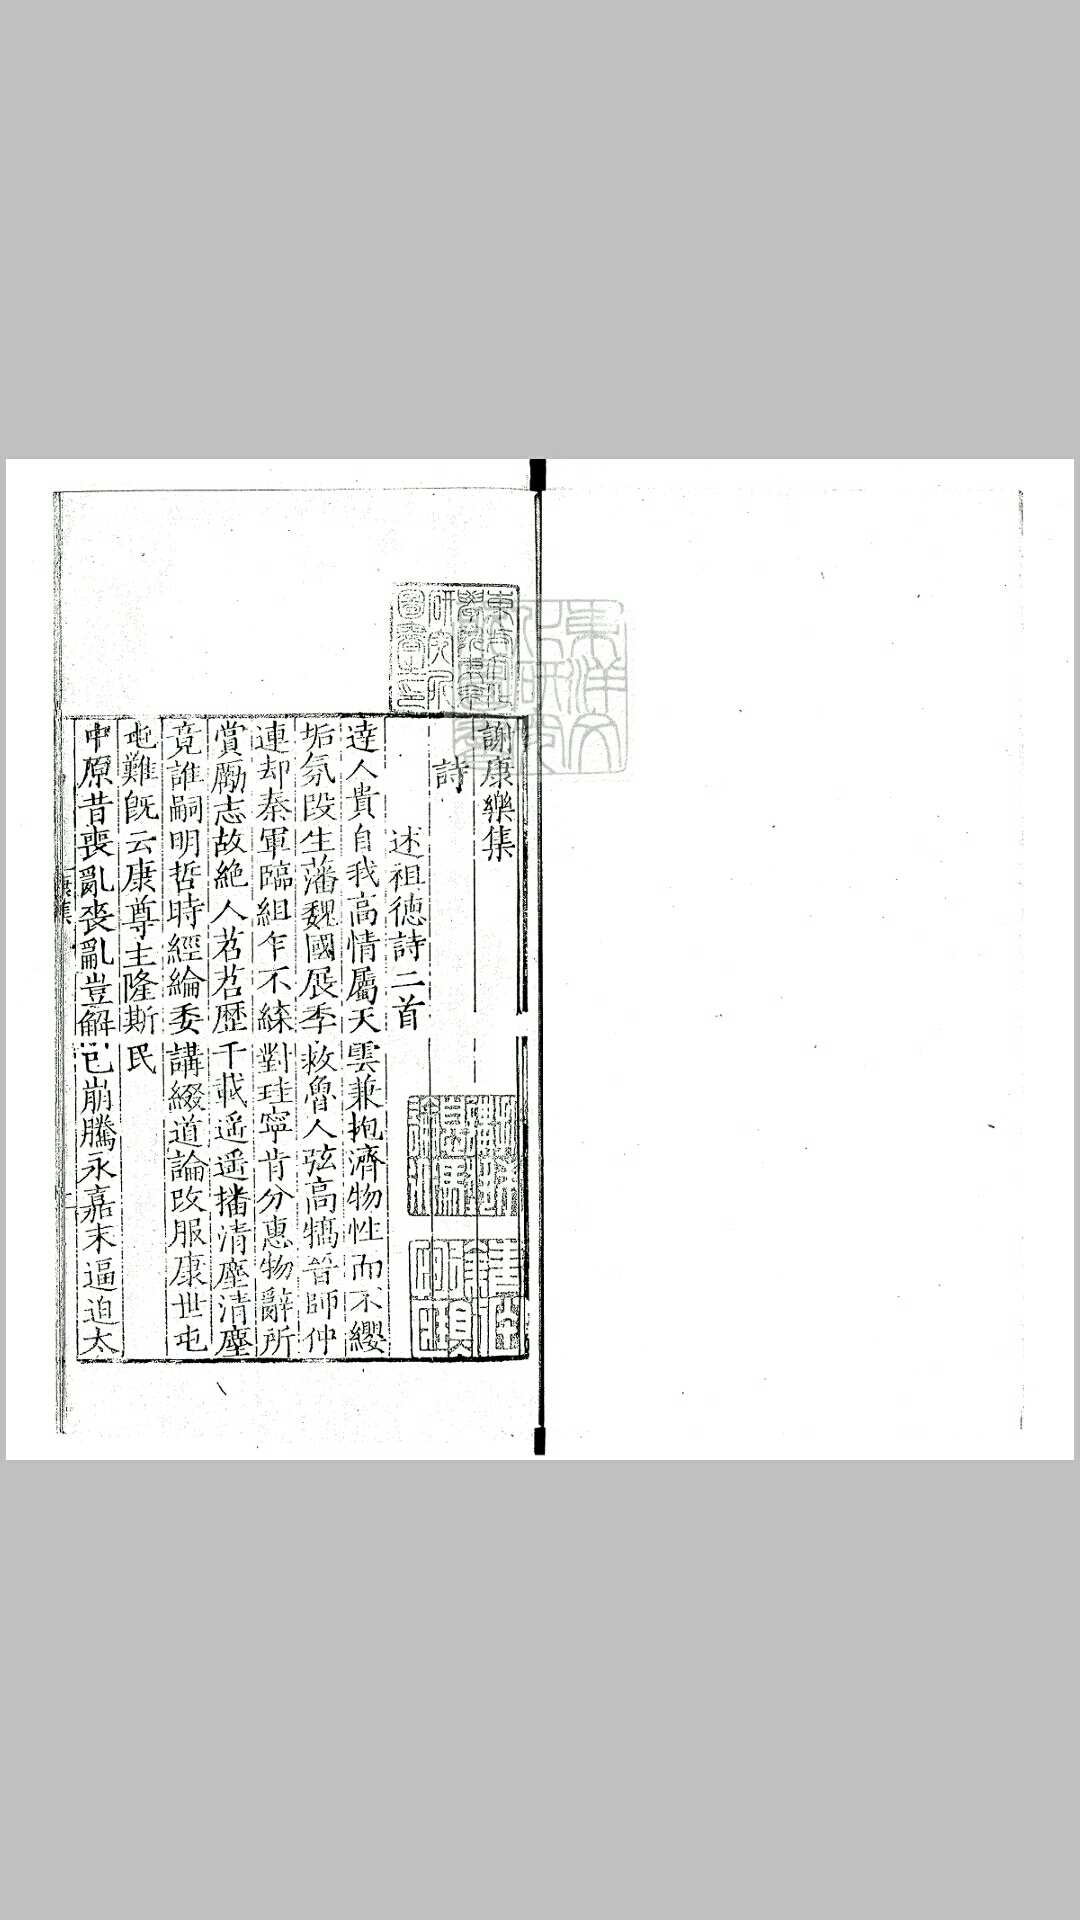 謝康樂集
詩
述祖德詩二首
達人貴自我高情屬天雲兼抱濟物性而不纓
垢氛段生藩魏國展季救魯人弦高犒晉師仲
連却秦軍臨組乍不緤對珪寧肯分惠物辭所
賞勵志故絶人苕苕歷千載遥遥播清塵清塵
竟誰嗣明哲時經綸委講綴道論改服康世屯
屯難旣云康尊主隆斯民
中原昔喪亂喪亂豈解已崩騰永嘉末逼迫太
康集
東方文化學院東京研究所圖書之印